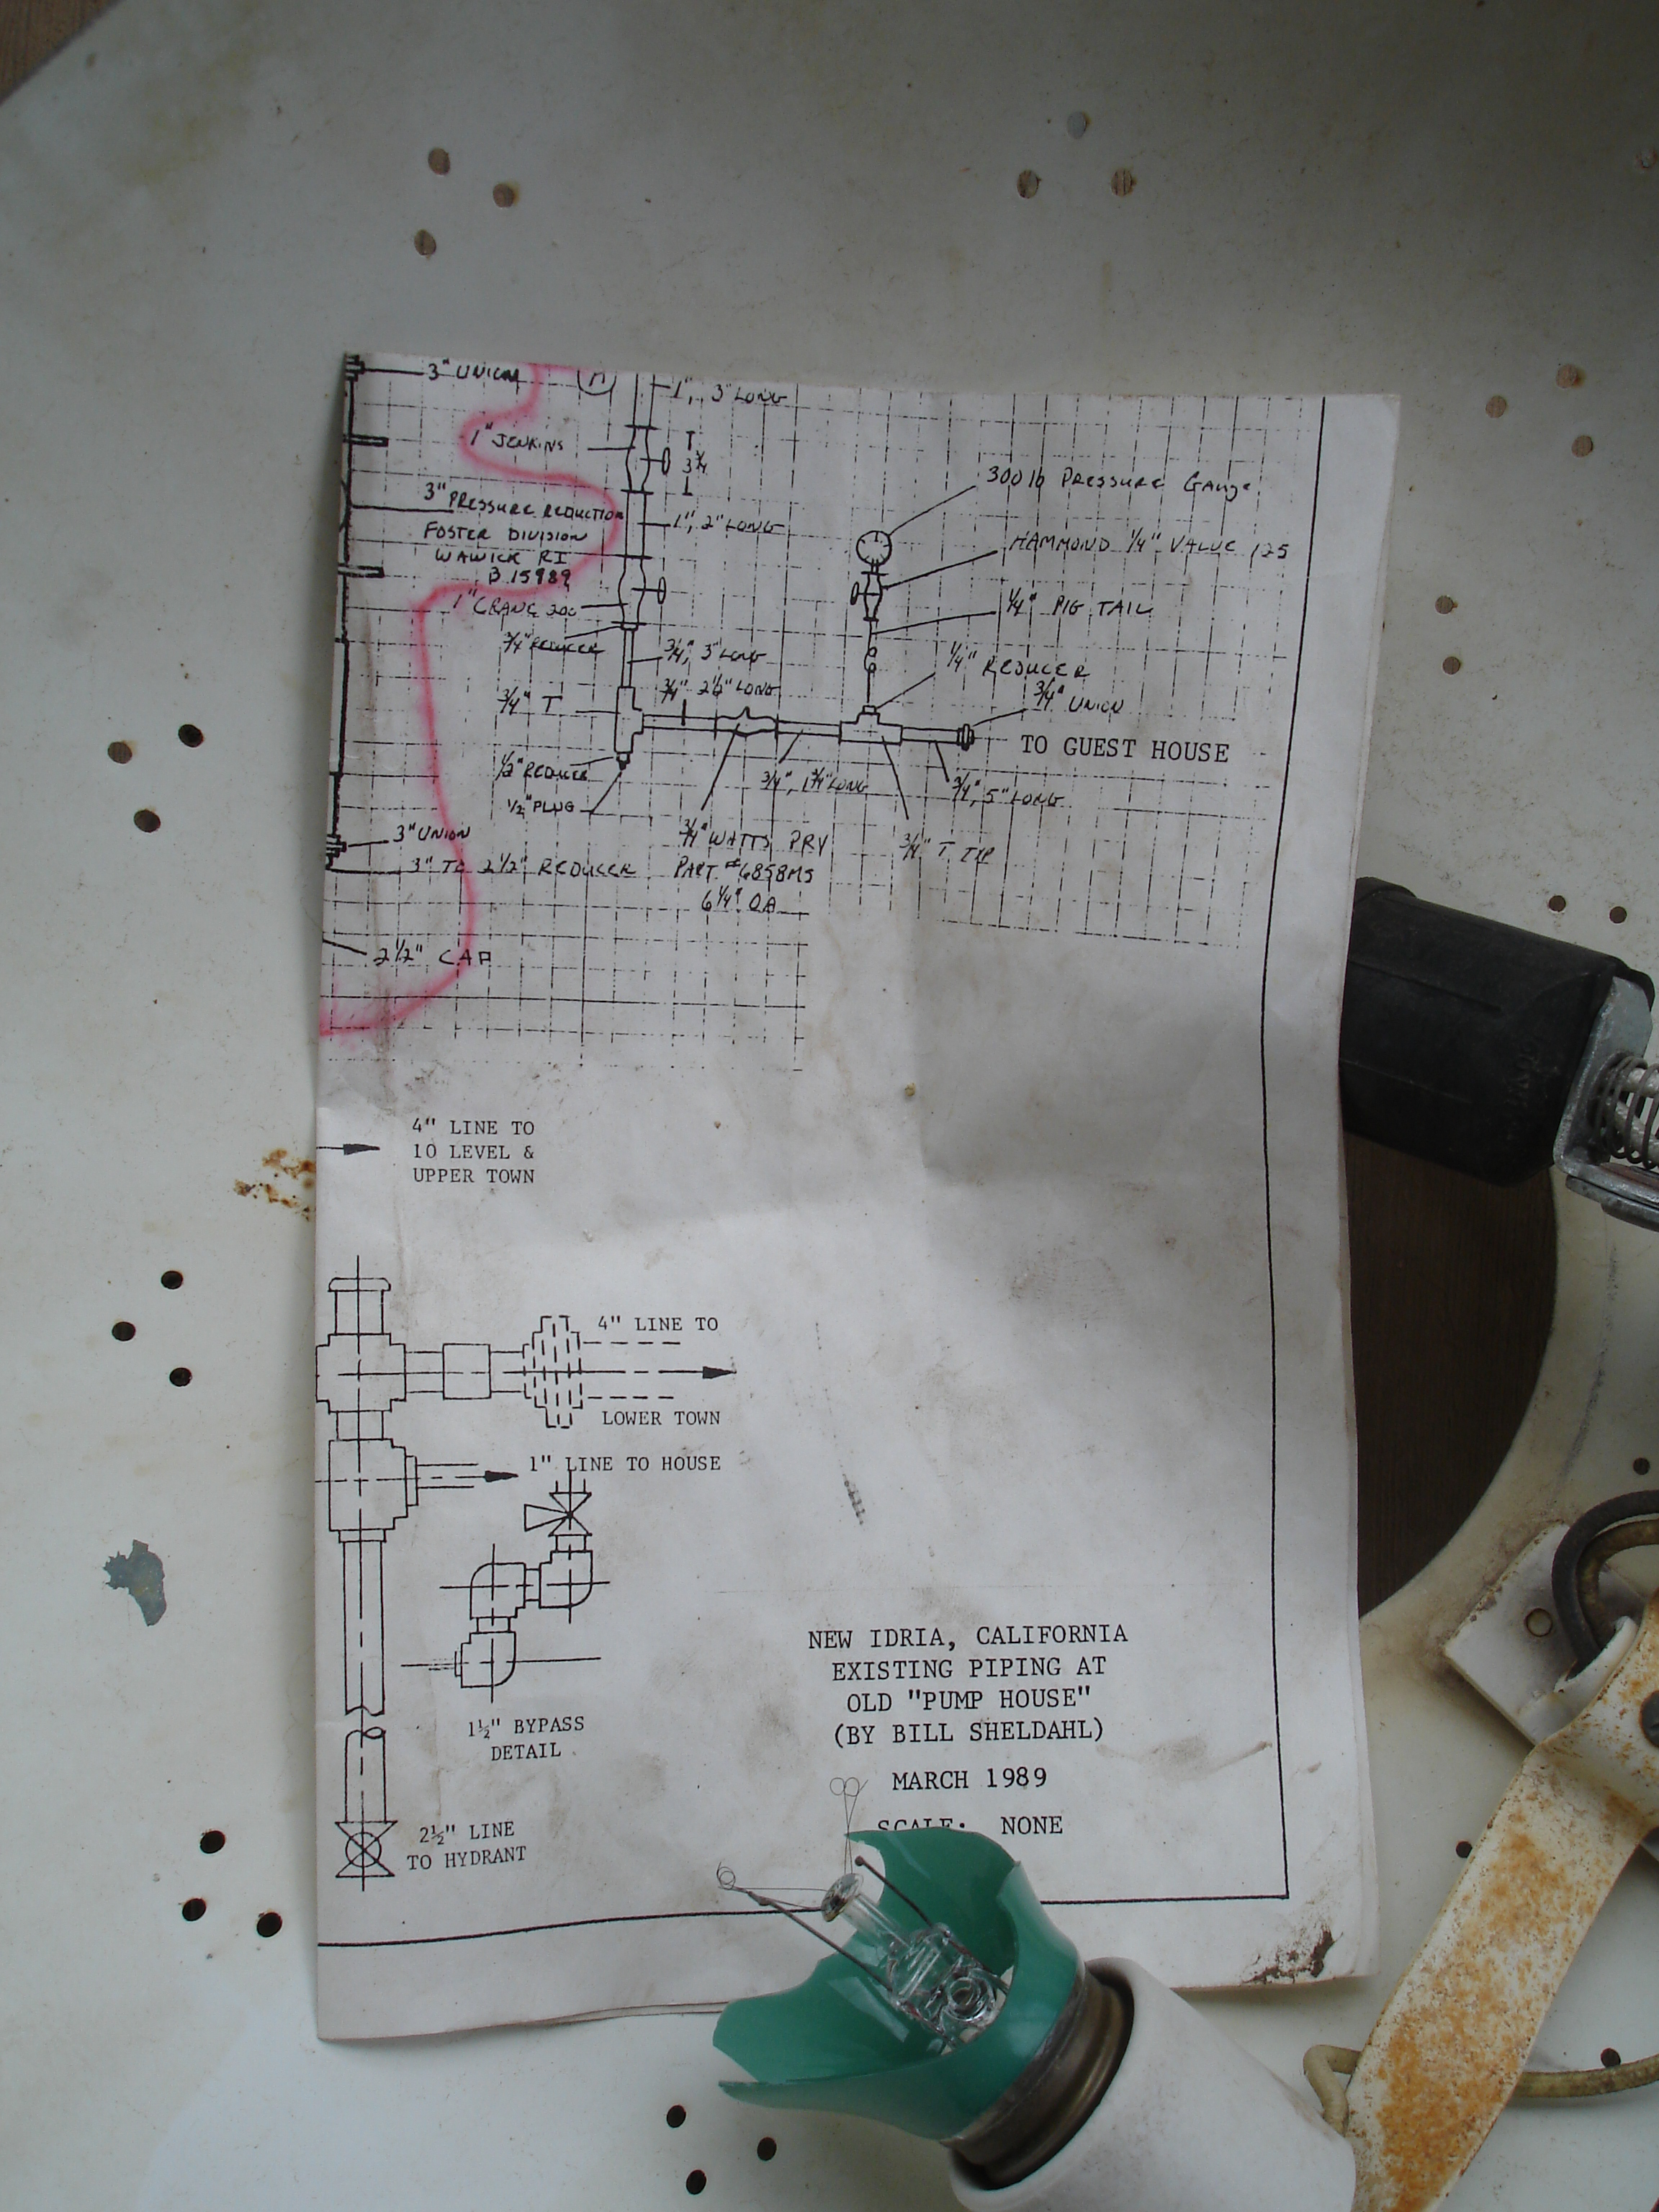 3" UNION
1", 3" LONG
1" JENKINS
3 3/4
3" PRESSURE REDUCTION
FOSTER DIVISION
WAWICK RI
B 15989
1", 2" LONG
300 lb PRESSURE GAUGE
HAMMOND 1/4" VALUE 125
1" CRANE 200
1/4" PIG TAIL
3/4" REDUCER
3/4", 3" LONG
1/4" REDUCER
3/4" T
3/4" 2 1/2" LONG
3/4" UNION
TO GUEST HOUSE
1/2" REDUCER
1/2" PLUG
3/4", 1 3/4" LONG
3/4", 5" LONG
3" UNION
3" TO 2 1/2" REDUCER
3/4" WATTS PRV
PART #6858MS
6 1/4" OA
3/4" T TYP
2 1/2" CAP
4" LINE TO
10 LEVEL &
UPPER TOWN
4" LINE TO
LOWER TOWN
1" LINE TO HOUSE
1½" BYPASS
DETAIL
2½" LINE
TO HYDRANT
NEW IDRIA, CALIFORNIA
EXISTING PIPING AT
OLD "PUMP HOUSE"
(BY BILL SHELDAHL)
MARCH 1989
SCALE: NONE